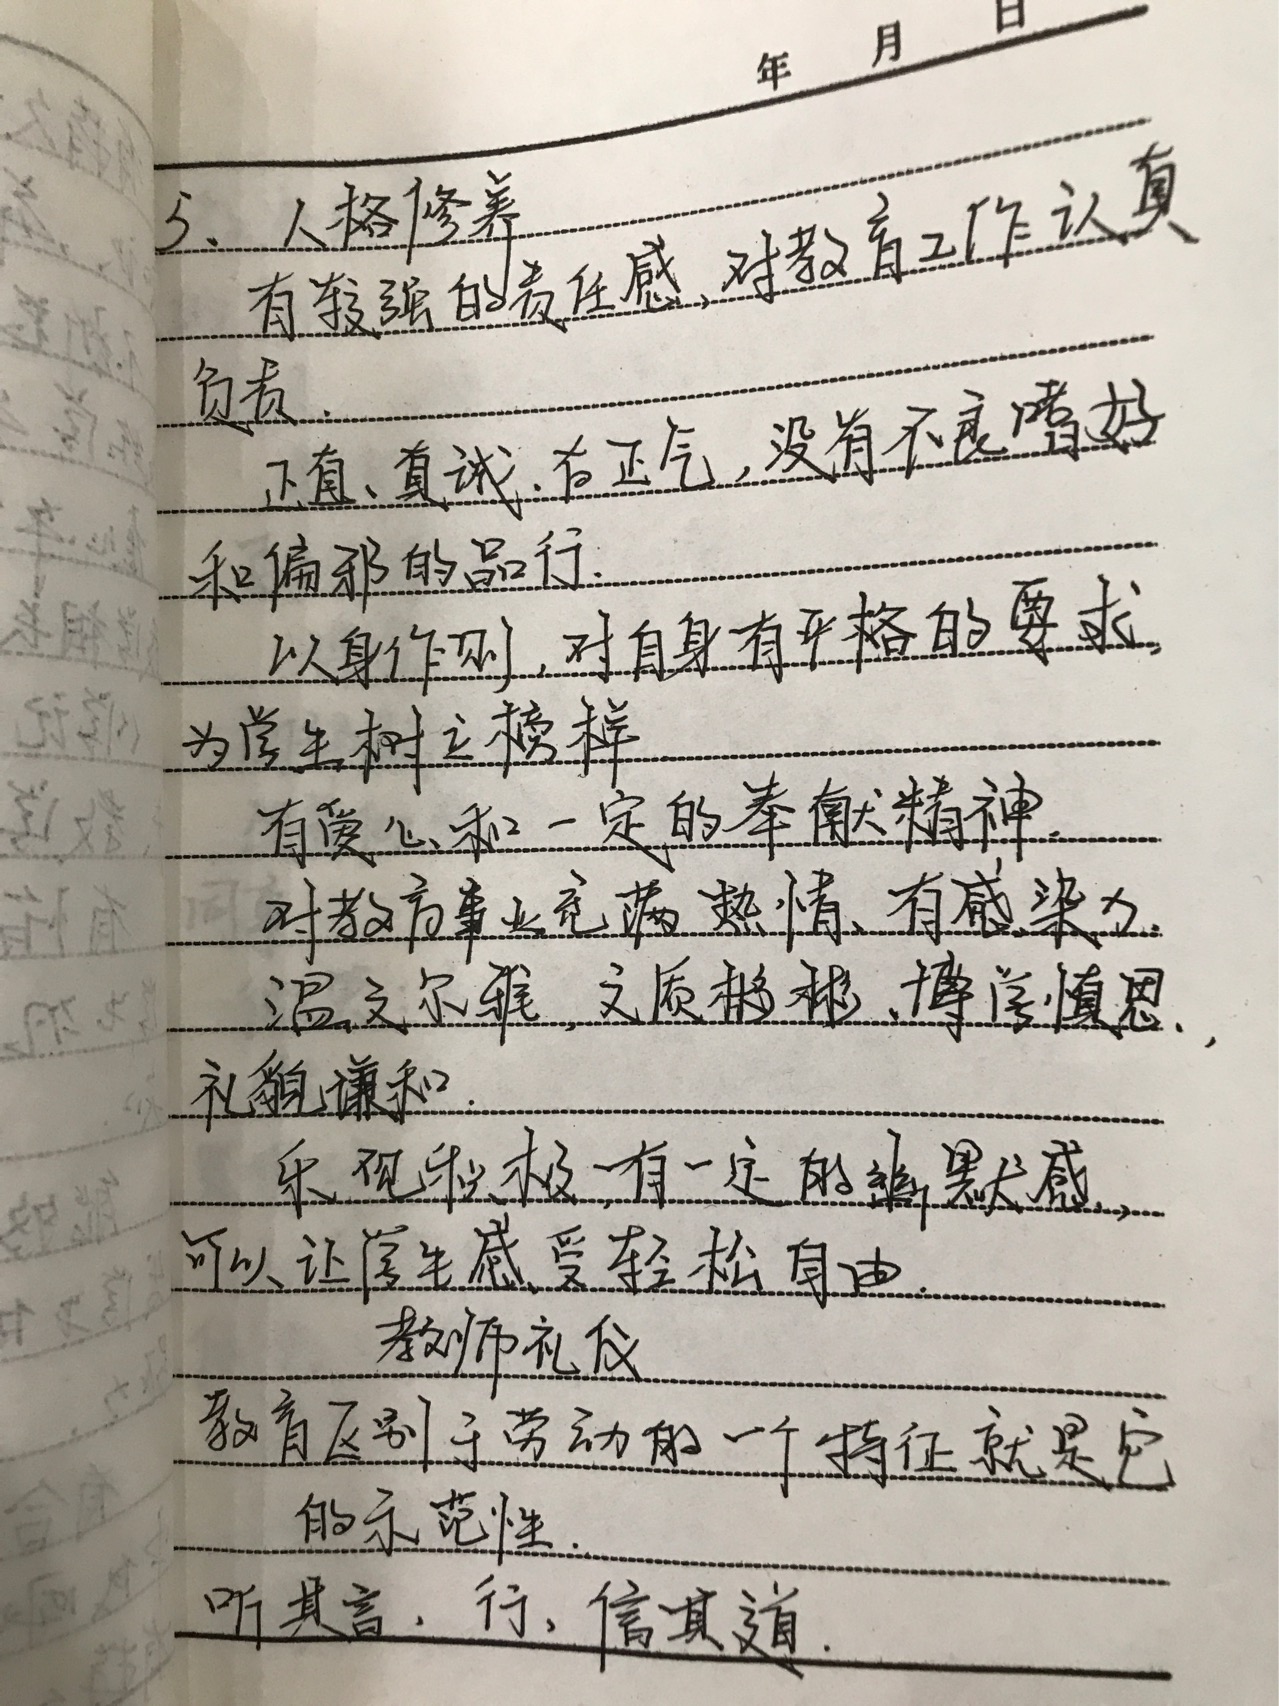 年 月 日
5、人格修养
有较强的责任感、对教育工作认真
负责.
正直、真诚、有正气,没有不良嗜好
和偏邪的品行.
以身作则,对自身有严格的要求,
为学生树立榜样
有爱心和一定的奉献精神.
对教育事业充满热情、有感染力.
温文尔雅,文质彬彬、博学慎思、,
礼貌谦和.
乐观积极,有一定的幽默感,
可以让学生感受轻松自由.
教师礼仪
教育区别于劳动的一个特征就是它
的示范性.
听其言、行、信其道.